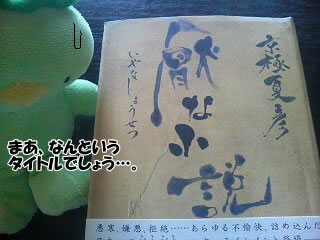 京極夏彦
厭な小説
いやなしょうせつ
まあ、なんという
タイトルでしょう…。
悪寒、嫌悪、拒絶……あらゆる不愉快、詰め込んだ